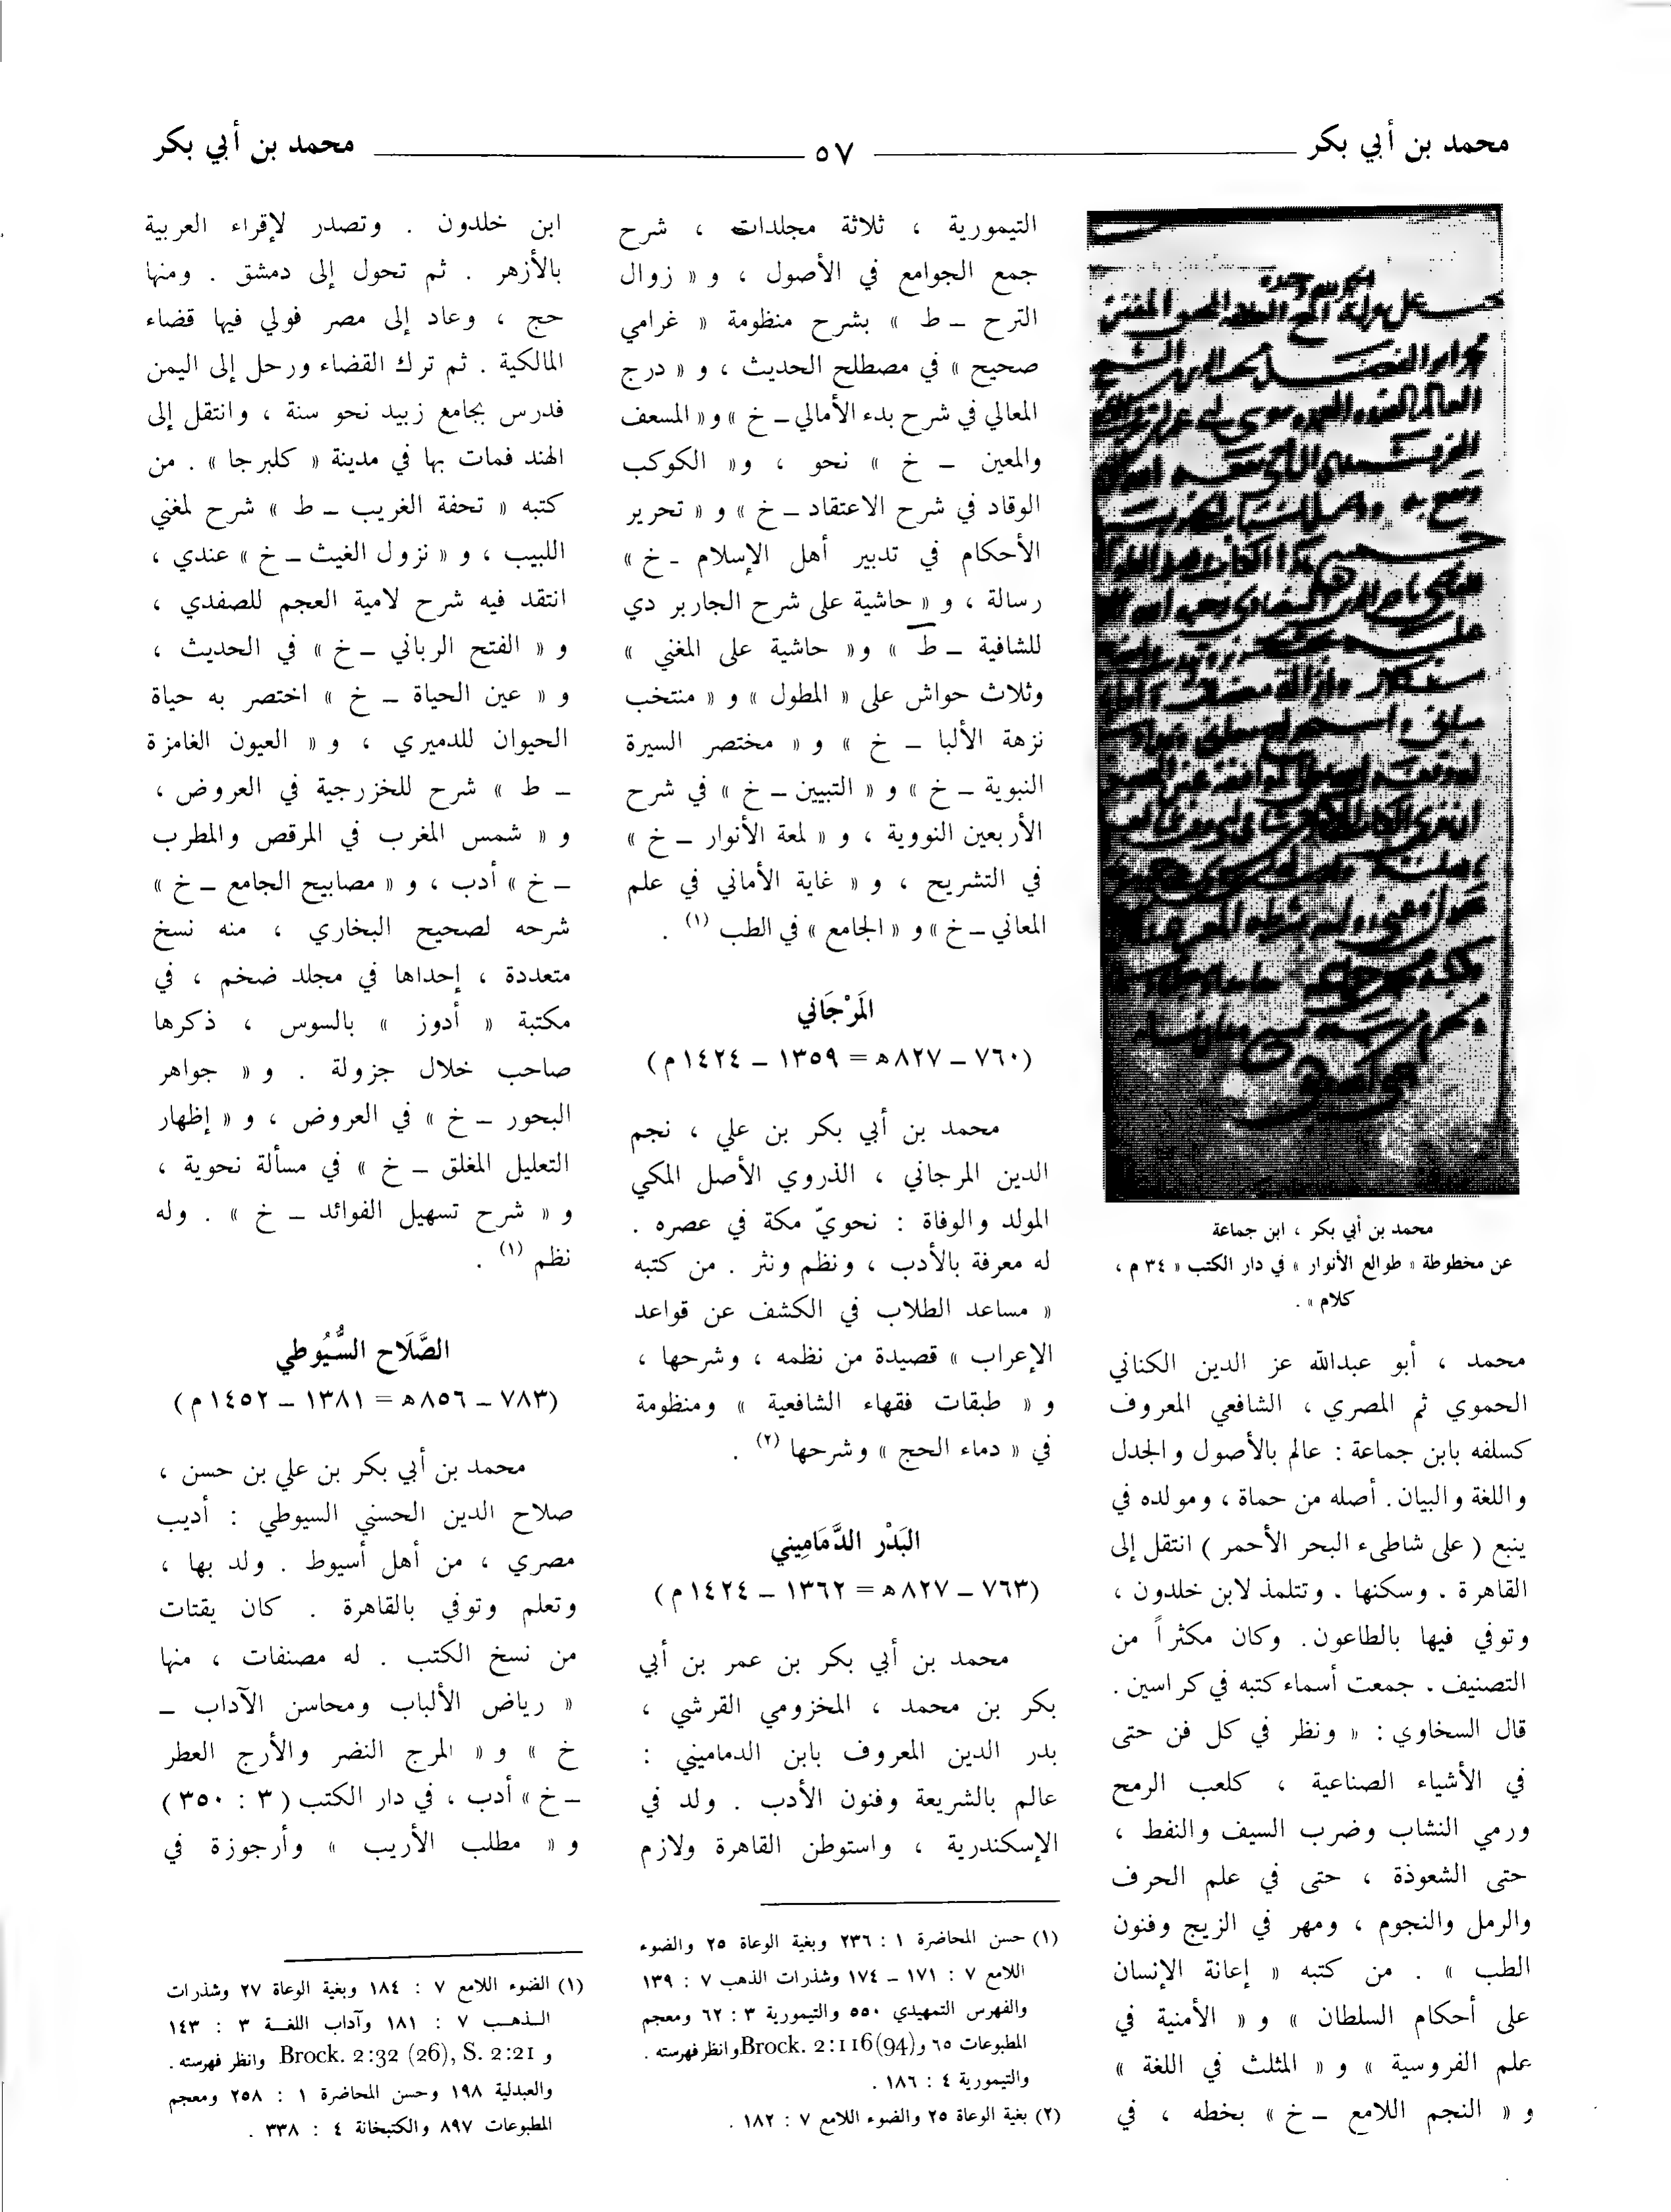 محمد بن أبي بكر
٥٧
محمد بن أبي بكر
محمد بن أبي بكر ، ابن جماعة
عن مخطوطة « طوالع الأنوار » في دار الكتب « ٣٤ م ،
كلام » .
محمد ، أبو عبدالله عز الدين الكناني
الحموي ثم المصري ، الشافعي المعروف
كسلفه بابن جماعة : عالم بالأصول والجدل
واللغة والبيان . أصله من حماة ، ومولده في
ينبع ( على شاطىء البحر الأحمر ) انتقل إلى
القاهرة . وسكنها . وتتلمذ لابن خلدون ،
وتوفي فيها بالطاعون . وكان مكثراً من
التصنيف . جمعت أسماء كتبه في كراسين .
قال السخاوي : « ونظر في كل فن حتى
في الأشياء الصناعية ، كلعب الرمح
ورمي النشاب وضرب السيف والنفط ،
حتى الشعوذة ، حتى في علم الحرف
والرمل والنجوم ، ومهر في الزيج وفنون
الطب » . من كتبه « إعانة الإنسان
على أحكام السلطان » و « الأمنية في
علم الفروسية » و « المثلث في اللغة »
و « النجم اللامع – خ » بخطه ، في
التيمورية ، ثلاثة مجلدات ، شرح
جمع الجوامع في الأصول ، و « زوال
الترح – ط » بشرح منظومة « غرامي
صحيح » في مصطلح الحديث ، و « درج
المعالي في شرح بدء الأمالي – خ » و « المسعف
والمعين – خ » نحو ، و« الكوكب
الوقاد في شرح الاعتقاد – خ » و « تحرير
الأحكام في تدبير أهل الإسلام - خ »
رسالة ، و « حاشية على شرح الجاربر دي
للشافية – ط » و« حاشية على المغني »
وثلاث حواش على « المطول » و « منتخب
نزهة الألبا – خ » و « مختصر السيرة
النبوية – خ » و « التبيين – خ » في شرح
الأربعين النووية ، و « لمعة الأنوار – خ »
في التشريح ، و « غاية الأماني في علم
المعاني – خ » و « الجامع » في الطب (١) .
المَرْجَاني
(٧٦٠ – ٨٢٧ ه = ١٣٥٩ – ١٤٢٤ م)
محمد بن أبي بكر بن علي ، نجم
الدين المرجاني ، الذروي الأصل المكي
المولد والوفاة : نحويّ مكة في عصره .
له معرفة بالأدب ، ونظم ونثر . من كتبه
« مساعد الطلاب في الكشف عن قواعد
الإعراب » قصيدة من نظمه ، وشرحها ،
و « طبقات فقهاء الشافعية » ومنظومة
في « دماء الحج » وشرحها (٢) .
البَدْر الدَّمَامِيني
(٧٦٣ – ٨٢٧ ه = ١٣٦٢ – ١٤٢٤ م)
محمد بن أبي بكر بن عمر بن أبي
بكر بن محمد ، المخزومي القرشي ،
بدر الدين المعروف بابن الدماميني :
عالم بالشريعة وفنون الأدب . ولد في
الإسكندرية ، واستوطن القاهرة ولازم
(١) حسن المحاضرة ١ : ٢٣٦ وبغية الوعاة ٢٥ والضوء
اللامع ٧ : ١٧١ – ١٧٤ وشذرات الذهب ٧ : ١٣٩
والفهرس التمهيدي ٥٥٠ والتيمورية ٣ : ٦٢ ومعجم
المطبوعات ٦٥ و Brock. 2:116(94) وانظر فهرسته .
والتيمورية ٤ : ١٨٦ .
(٢) بغية الوعاة ٢٥ والضوء اللامع ٧ : ١٨٢ .
ابن خلدون . وتصدر لإقراء العربية
بالأزهر . ثم تحول إلى دمشق . ومنها
حج ، وعاد إلى مصر فولي فيها قضاء
المالكية . ثم ترك القضاء ورحل إلى اليمن
فدرس بجامع زبيد نحو سنة ، وانتقل إلى
الهند فمات بها في مدينة « كلبرجا » . من
كتبه « تحفة الغريب – ط » شرح لمغني
اللبيب ، و « نزول الغيث – خ » عندي ،
انتقد فيه شرح لامية العجم للصفدي ،
و « الفتح الرباني – خ » في الحديث ،
و « عين الحياة – خ » اختصر به حياة
الحيوان للدميري ، و « العيون الغامزة
– ط » شرح للخزرجية في العروض ،
و « شمس المغرب في المرقص والمطرب
– خ » أدب ، و « مصابيح الجامع – خ »
شرحه لصحيح البخاري ، منه نسخ
متعددة ، إحداها في مجلد ضخم ، في
مكتبة « أدوز » بالسوس ، ذكرها
صاحب خلال جزولة . و « جواهر
البحور – خ » في العروض ، و « إظهار
التعليل المغلق – خ » في مسألة نحوية ،
و « شرح تسهيل الفوائد – خ » . وله
نظم (١) .
الصَّلَاح السُّيُوطي
(٧٨٣ – ٨٥٦ ه = ١٣٨١ – ١٤٥٢ م)
محمد بن أبي بكر بن علي بن حسن ،
صلاح الدين الحسني السيوطي : أديب
مصري ، من أهل أسيوط . ولد بها ،
وتعلم وتوفي بالقاهرة . كان يقتات
من نسخ الكتب . له مصنفات ، منها
« رياض الألباب ومحاسن الآداب –
خ » و « المرج النضر والأرج العطر
– خ » أدب ، في دار الكتب ( ٣ : ٣٥٠ )
و « مطلب الأريب » وأرجوزة في
(١) الضوء اللامع ٧ : ١٨٤ وبغية الوعاة ٢٧ وشذرات
الذهب ٧ : ١٨١ وآداب اللغة ٣ : ١٤٣
و Brock. 2:32 (26), S. 2:21 وانظر فهرسته .
والعبدلية ١٩٨ وحسن المحاضرة ١ : ٢٥٨ ومعجم
المطبوعات ٨٩٧ والكتبخانة ٤ : ٣٣٨ .